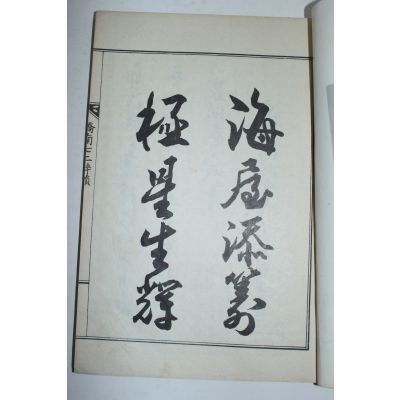 海屋添籌
極星生輝